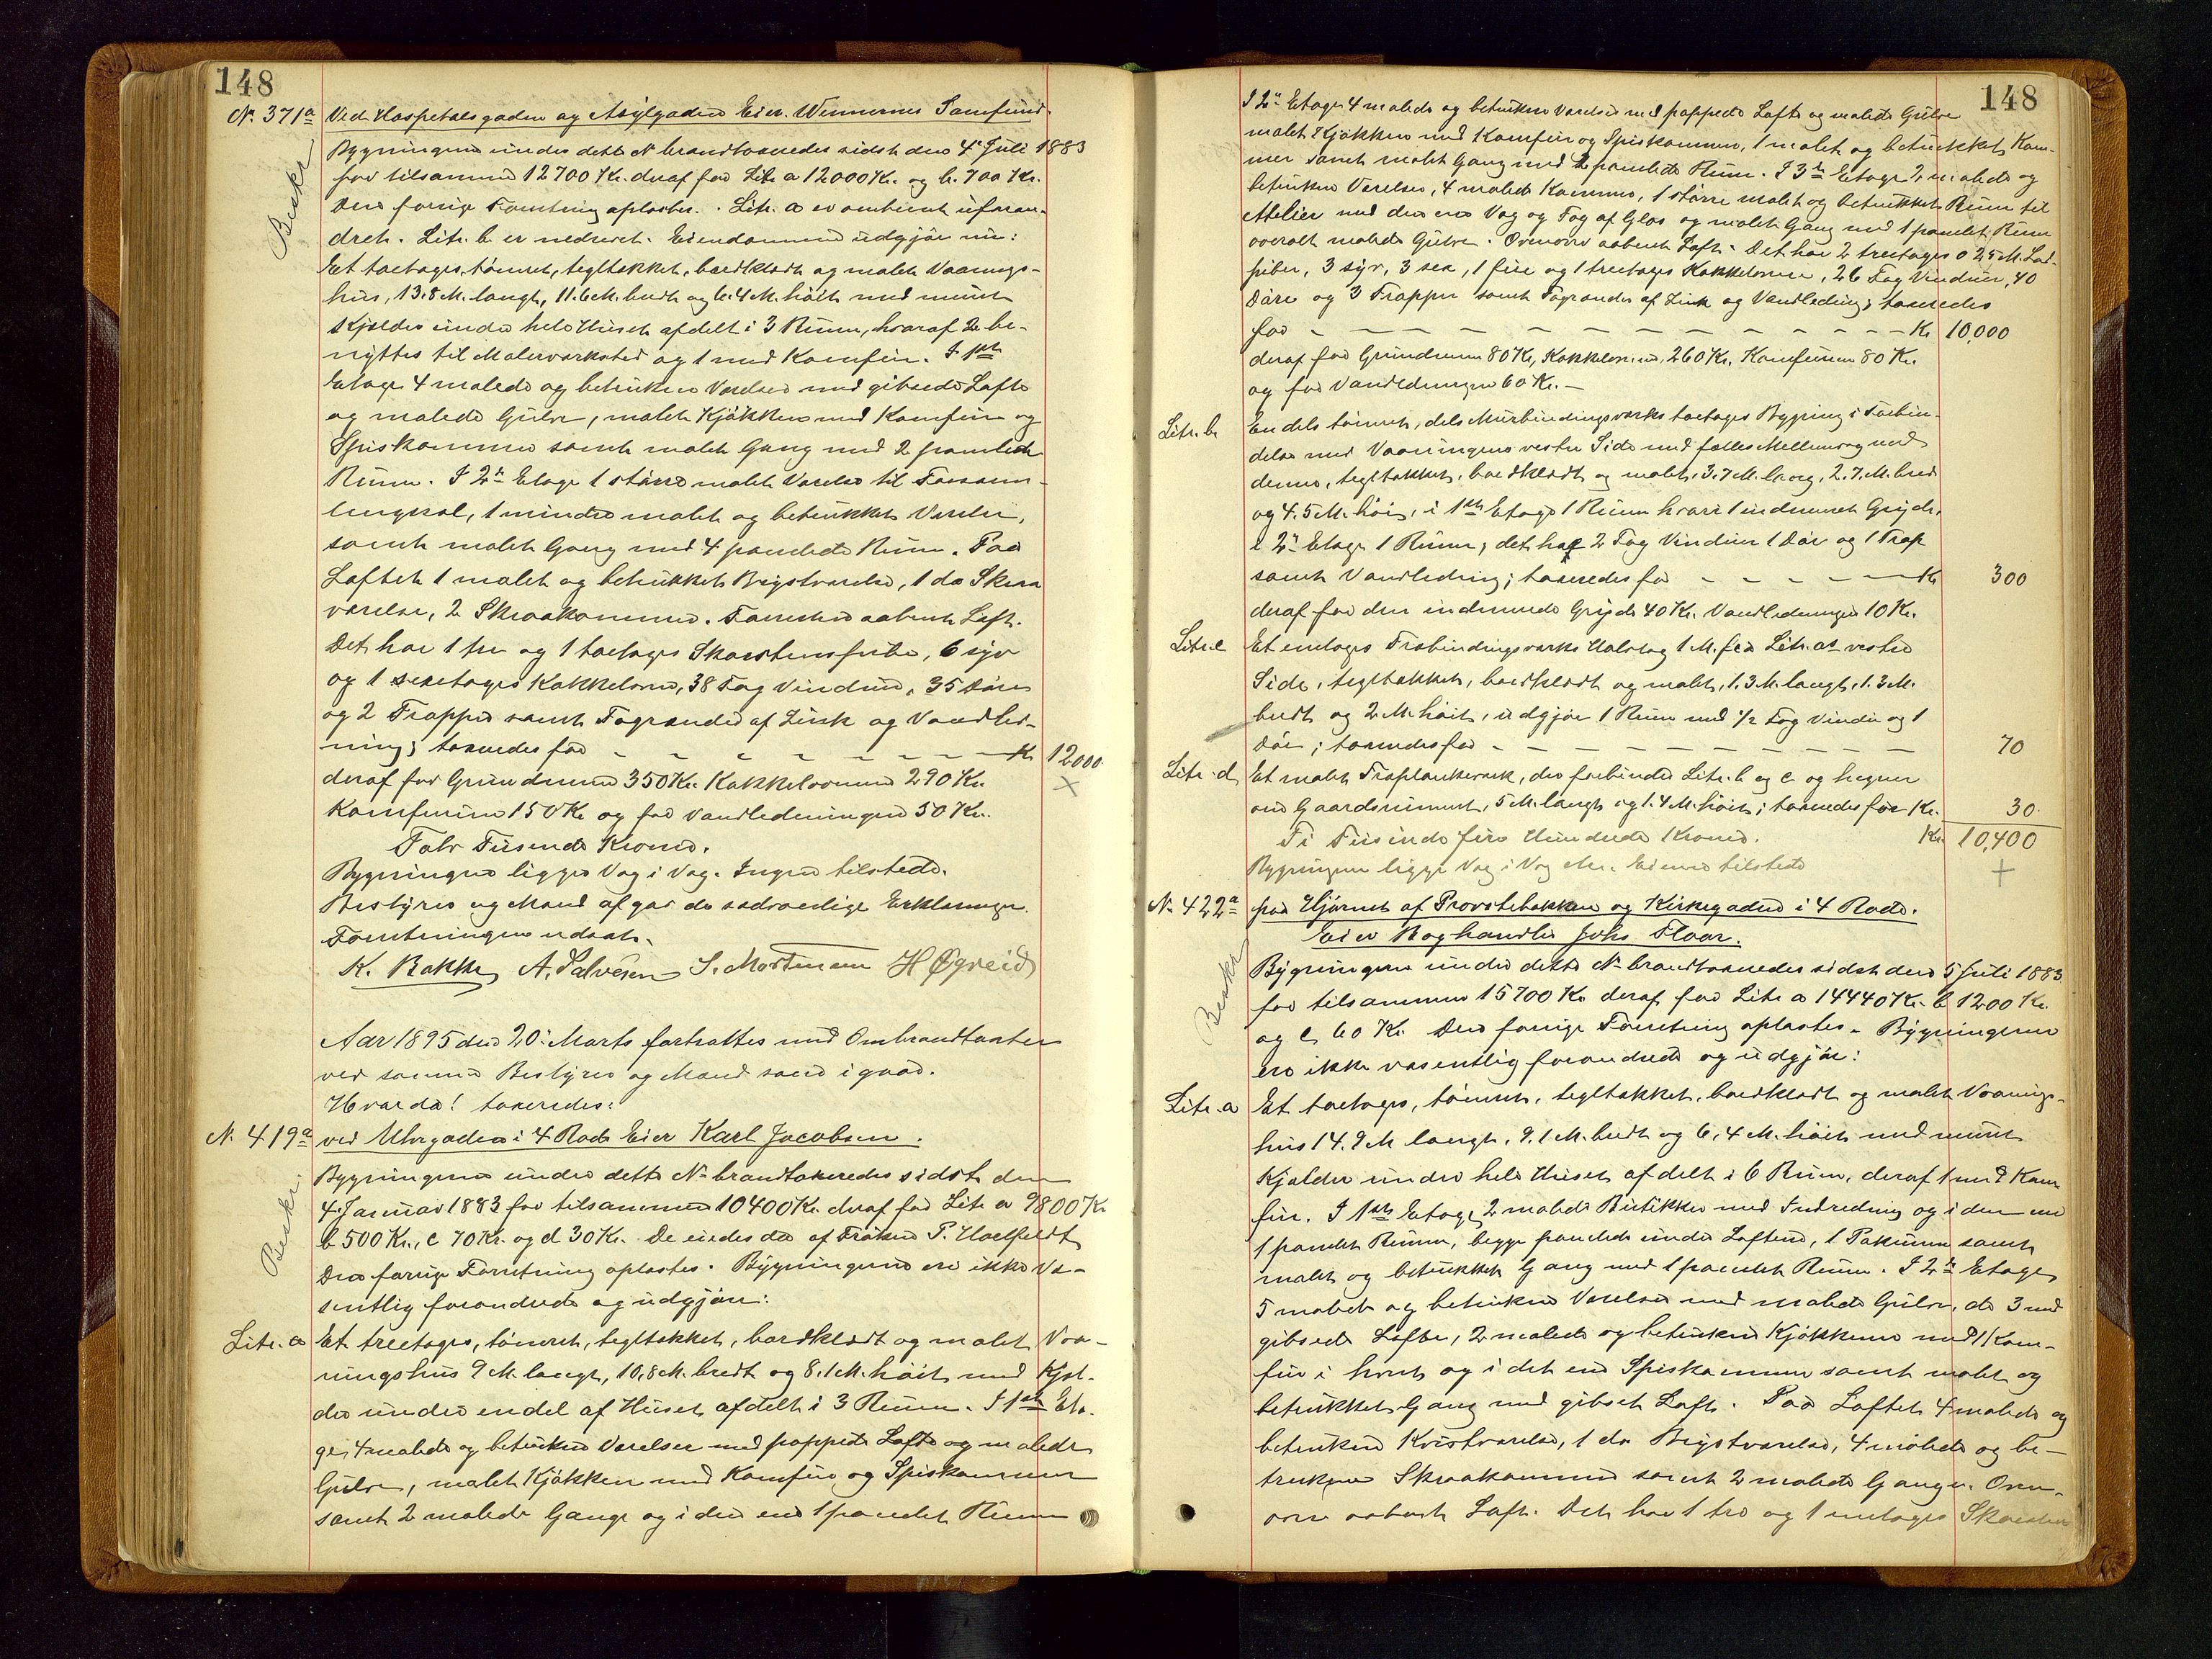 148
N. 371a Ved Hospitalsgaden og Asylgaden Eier. Vennernes Samfund.
Beskr
Bygningerne under dette N brandtaxeredes sidst den 4 Juli 1883
for tilsammen 12700 Kr. deraf for Litr a 12000 Kr. og b. 700 Kr.
Den forrige Forretning oplæstes. Litr. a er omtrent uforan-
dret. Litr. b er nedrevet. Eiendommen udgjør nu:
Et toetages, tømret, tegltækket, bordklædt og malet Vaanings-
hus, 13.8 M. langt, 11.6 M. bredt og 6.4 M. høit med muret
Kjælder under hele Huset afdelt i 3 Rum, hvoraf 2 be-
nyttes til Malerværksted og 1 med Komfur. I 1ste
Etage 4 malede og betrukne Værelser med gibsede Lofte
og malede Gulve, malet Kjøkken med Komfur og
Spiskammer samt malet Gang med 2 panelede
Rum. I 2n Etage 1 større malet Værelse til Forsam-
lingssal, 1 mindre malet og betrukket Værelse,
samt malet Gang med 4 panelede Rum. Paa
Loftet 1 malet og betrukket Brystværelse, 1 do Skraa
værelse, 2 Skraakammere. Forresten aabent Loft.
Det har 1 tre og 1 toetages Skorstenspibe, 6 syv
og 1 sexetages Kakkelovne, 38 Fag Vinduer, 35 Døre
og 2 Trapper samt Tagrender af Zink og Vandled-
ning; taxeredes for - - - - - - - - Kr 12000.
deraf for Grundmuren 350 Kr. Kakkelovnene 290 Kr.
Komfurene 150 Kr og for Vandledningen 50 Kr.
Tolv Tusende Kroner.
Bygningen ligger Væg i Væg. Ingen tilstede.
Bestyrer og Mænd afgav de sædvanlige Erklæringer.
Forretningen udsat.
K. Bakke A. Salvesen S. Mortensen H Øgreid
Aar 1895 den 20 Marts fortsattes med Ombrandtaxten
ved samme Bestyrer og Mænd som igaar.
Hvorda! taxeredes:
N. 419a ved Uhrgaden i 4 Rode Eier Karl Jacobsen.
Beskr.
Bygningerne under dette N brandtaxeredes sidst den
4 Januar 1883 for tilsammen 10400 Kr. deraf for Litr a 9800 Kr
b 500 Kr., c 70 Kr. og d 30 Kr. De eiedes da af Frøken P. Hoelfeldt
Den forrige Forretning oplæstes. Bygningerne ere ikke væ-
sentlig forandrede og udgjøre:
Litr. a Et treetages, tømret, tegltækket, bordklædt og malet Vaa-
ningshus 9 M. langt, 10,8 M. bredt og 8.1 M. høit med Kjæl-
der under endel af Huset afdelt i 3 Rum. I 1ste Eta-
ge 4 malede og betrukne Værelser med pappede Lofte og malede
Gulve, malet Kjøkken med Komfur og Spiskammer
samt 2 malede Gange og i den ene 1 panelet Rum
148
I 2n Etage 4 malede og betrukne Værelser med pappede Lofte og malede Gulve
malet Kjøkken med Komfur og Spiskammer, 1 malet og betrukket Kam-
mer samt malet Gang med 2 panelede Rum. I 3de Etage 2 malede og
betrukne Værelser, 4 malede Kammere, 1 større malet og betrukket Rum til
Attelier med den ene Væg og Tag af Glas og malet Gang med 1 panelet Rum
overalt malede Gulve. Ovenover aabent Loft. Det har 2 treetages
piber, 3 syv, 3 sex, 1 fire og 1 treetages Kakkelovne, 26 Fag Vinduer, 40
Døre og 3 Trapper samt Tagrender af Zink og Vandledning; taxeredes
for - - - - - - - - - - - Kr 10,000
deraf for Grundmuren 80 Kr, Kakkelovnene 260 Kr. Komfurene 80 Kr.
og for Vandledningen 60 Kr. —
Litr. b En dels tømret, dels Murbindingsværks toetages Bygning i Forbin-
delse med Vaaningens vestre Side med fælles Mellemvæg med
denne, tegltækket, bordklædt og malet, 3.7 M. lang, 2.7 M. bred
og 4.5 M. høi, i 1ste Etage 1 Rum hvori 1 indmuret Gryde,
i 2n Etage 1 Rum; det har 2 Fag Vinduer 1 Dør og 1 Trap
samt Vandledning; taxeredes for - - - - - Kr 300
deraf for den indmurede Gryde 40 Kr. Vandledningen 10 Kr.
Litr. c Et enetages Træbindingsværks Halvtag 1 M. fra Litr. a's vestre
Side, tegltækket, bordklædt og malet, 1.3 M. langt, 1.3 M.
bredt og 2 M. høit, udgjør 1 Rum med 1/2 Fag Vindu og 1
Dør; taxeredes for - - - - - - - - 70
Litr. d Et malet Træplankeværk, der forbinder Litr. b og c og hegner
om Gaardsrummet, 5 M. langt og 1.4 M. høit; taxeredes for Kr. 30.
Ti Tusinde fire Hundrede Kroner. Kr. 10,400
Bygningen ligger Væg i Væg etc. Eieren tilstede
N. 422a paa Hjørnet af Provstebakken og Kirkegaden i 4 Rode.
Eier Boghandler Johs Floor.
Beskr
Bygningerne under dette N brandtaxeredes sidst den 5 Juli 1883
for tilsammen 15700 Kr deraf for Litr a 14440 Kr. b 1200 Kr.
og c 60 Kr. Den forrige Forretning oplæstes. Bygningerne
ere ikke væsentlig forandrede og udgjør:
Litr. a Et toetages, tømret, tegltækket, bordklædt og malet Vaanings-
hus 14.9 M langt, 9.1 M. bredt og 6,4 M. høit med muret
Kjælder under hele Huset afdelt i 6 Rum, deraf 1 med Kom
fur. I 1ste Etage 2 malede Butikker med Indredning og i den ene
1 panelet Rum, begge panelede under Loftene, 1 Pakrum samt
malet og betrukket Gang med 1 panelet Rum. I 2n Etage
5 malede og betrukne Værelser med malede Gulve, de 3 med
gibsede Lofte, 2 malede og betrukne Kjøkkener med 1 Kom-
fur i hvert og i det ene Spiskammer samt malet og
betrukket Gang med gibset Loft. Paa Loftet 4 malede og
betrukne Kvistværelser, 1 do Brystværelse, 4 malede og be-
trukne Skraakammere samt 2 malede Gange. Oven-
over aabent Loft. Det har 1 tre og 1 enetages Skorsten